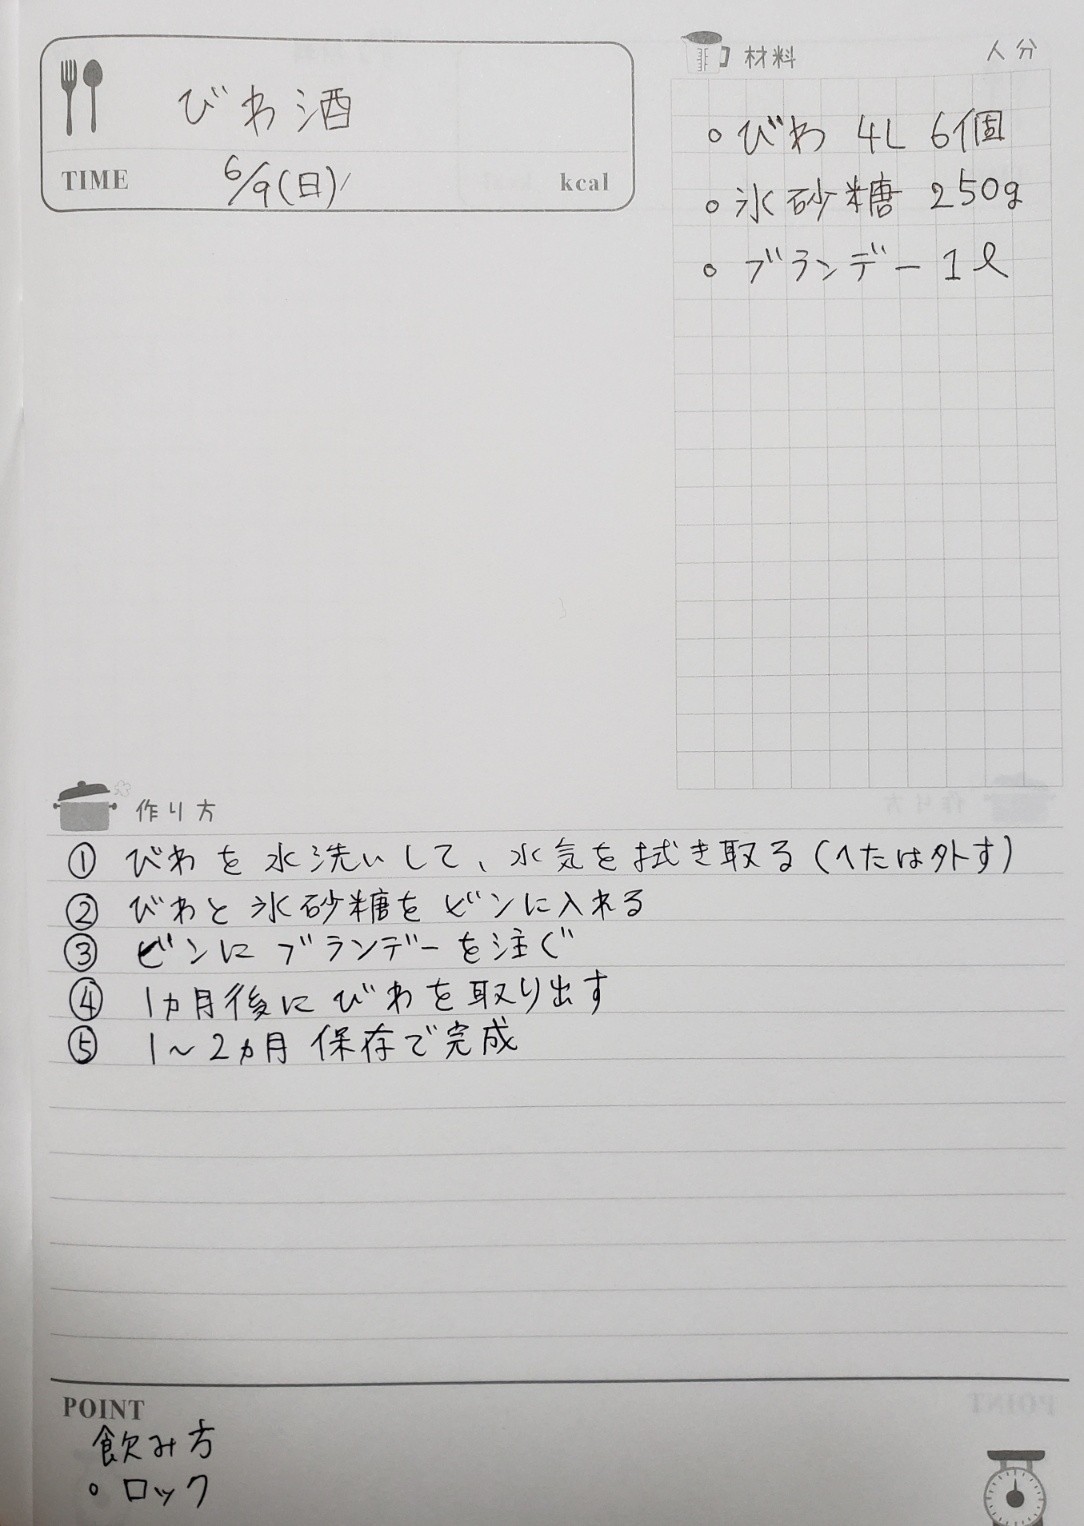 びわ酒
TIME 6/9(日) kcal
材料 人分
○ びわ 4L 6個
○ 氷砂糖 250g
○ ブランデー 1ℓ
作り方
① びわを水洗いして、水気を拭き取る(へたは外す)
② びわと氷砂糖をビンに入れる
③ ビンにブランデーを注ぐ
④ 1ヵ月後にびわを取り出す
⑤ 1〜2ヵ月保存で完成
POINT
飲み方
○ ロック